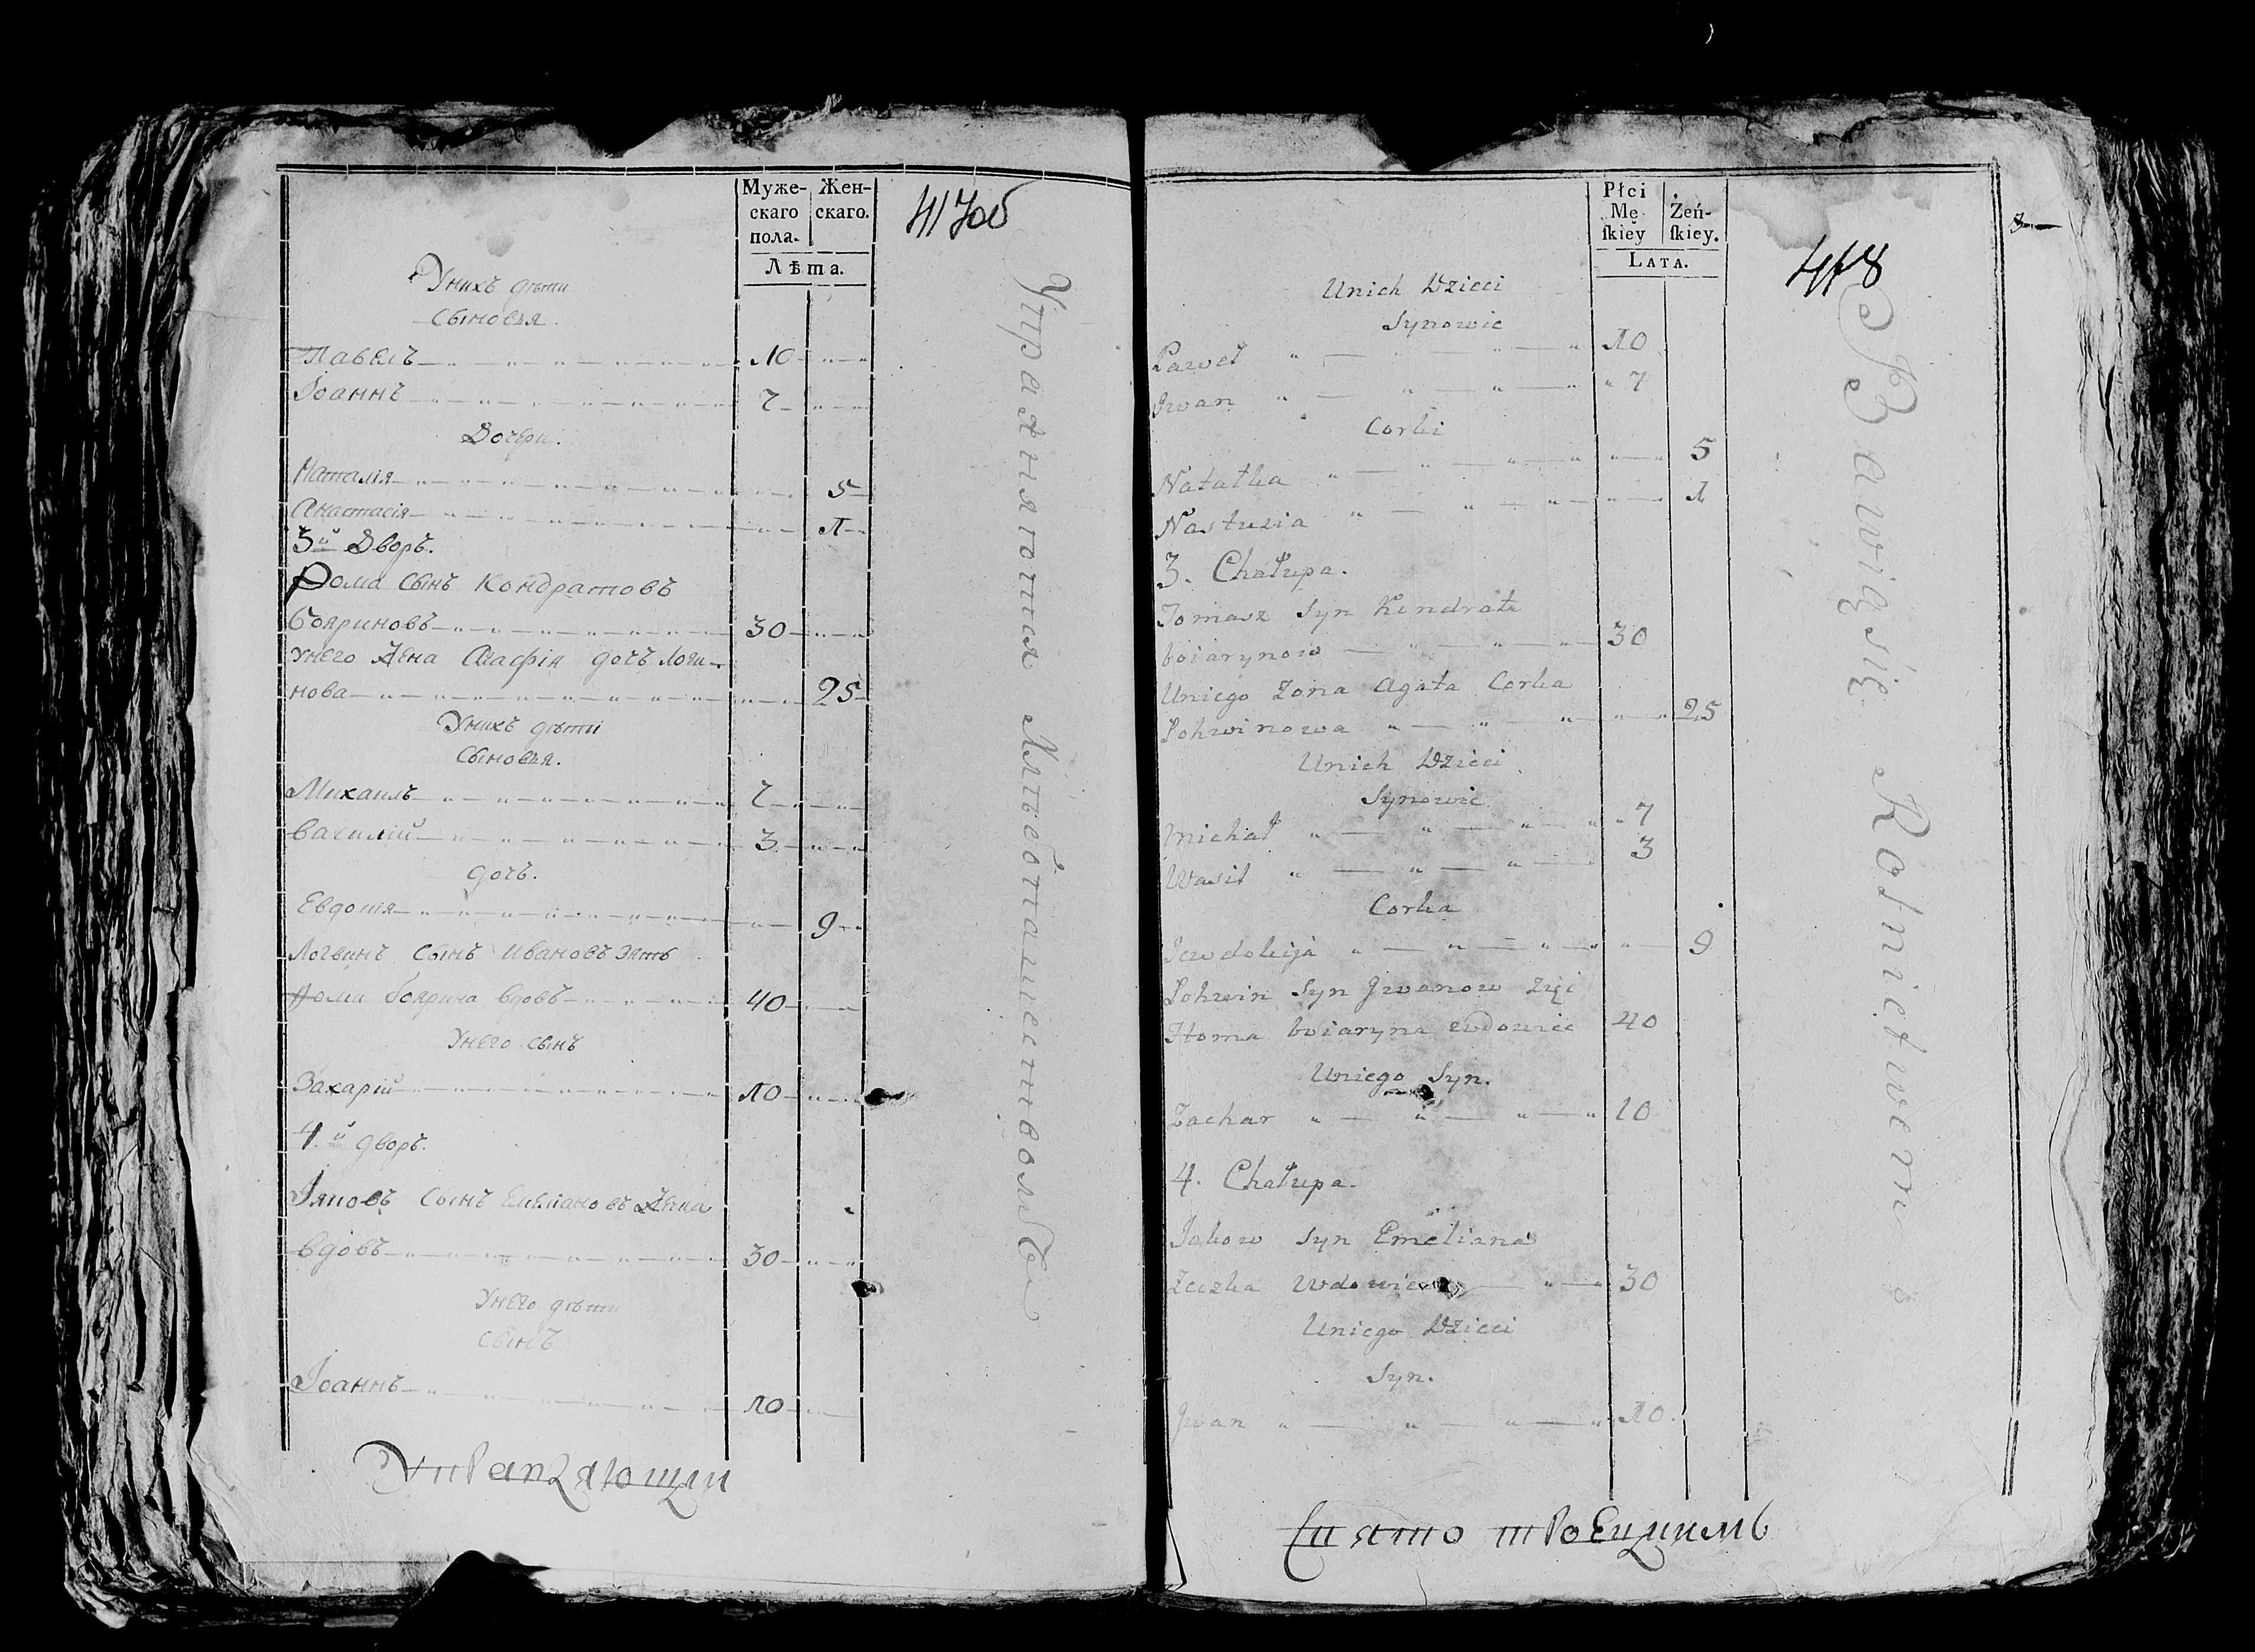 Муже-
скаго
пола.
Жен-
скаго.
Лѣта.
417об
Унихъ дѣти
Сыновья.
Павелъ 10
Іоаннъ 7
Дочери.
Наталія 5
Анастасія 1
3й Дворъ.
Фома Сынъ Кондратовъ
Бояриновъ 30
Унего Жена Агафія дочь Логи-
нова 25
Унихъ дѣти
Сыновья.
Михаилъ 7
Василій 3
дочь.
Евдокія 9
Логвинъ Сынъ Ивановъ Зять
Хомы боярина вдовъ 40
Унего сынъ
Захарій 10
4й дворъ.
Іяковъ Сынъ Емеліановъ
вдовъ 30
Унего дѣти
Сынъ
Іоаннъ 10
Упражняются
Płci
Mę
ſkiey
Żeń-
ſkiey.
LATA.
418
Unich Dzieci
Synowie
Paweł 10
Jwan 7
Corki
Natałka 5
Nastuzia 1
3. Chałupa.
Tomasz Syn Kondrata
boiarynow 30
Uniego Zona Agata Corka
Lohwinowa 25
Unich Dzieci
Synowie
Michał 7
Wasil 3
Corka
Jewdokija 9
Lohwin Syn Jwanow Zięć
Homa boiaryna wdowiec 40
Uniego Syn.
Zachar 10
4. Chałupa.
Jakow Syn Emeliana
Zeczka Wdowiec 30
Uniego Dzieci
Syn.
Jwan 10
Bawią się Rolnictwem